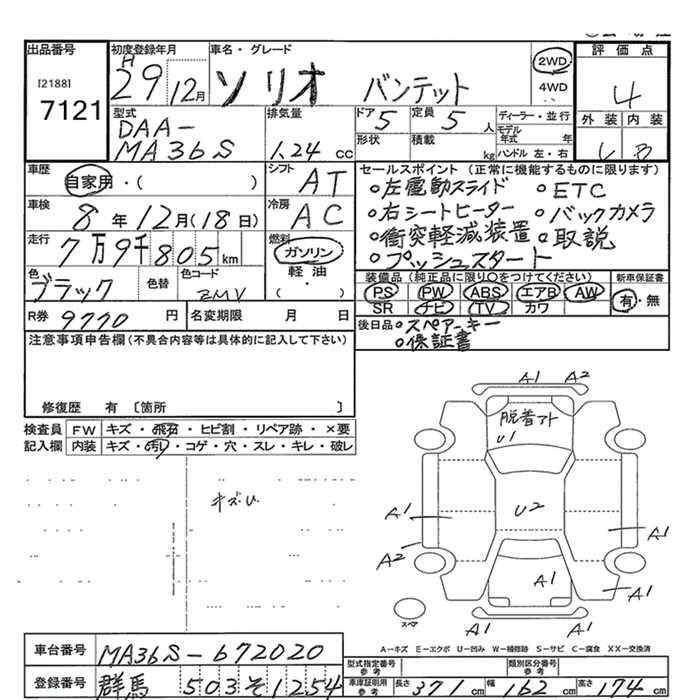 出品番号
[2188]
7121
初度登録年月
H 29 12月
車名・グレード
ソリオ バンデット
2WD
4WD
評価点
4
外装 内装
B
型式
DAA-
MA36S
排気量
1.24 cc
ドア 5
定員 5 人
形状
積載 kg
ディーラー・並行
モデル年式 年
ハンドル 左・右
車歴
自家用・( )
シフト AT
車検
8年12月(18日)
冷房 AC
走行
7万9千805km
燃料
ガソリン
軽油・
( )
色
ブラック
色替
色コード
ZMV
R券 9770 円
名変期限 月 日
セールスポイント(正常に機能するものに限ります)
○左電動スライド ○ETC
○右シートヒーター ○バックカメラ
○衝突軽減装置 ○取説
○プッシュスタート
装備品(純正品に限り○をつけてください)
新車保証書
PS PW ABS エアB AW
SR ナビ TV カワ
有・無
後日品 ○スペアーキー
○保証書
注意事項申告欄(不具合内容等は具体的に記入して下さい)
修復歴 有 〔箇所 〕
検査員記入欄
FW キズ・飛石・ヒビ割・リペア跡・×要
内装 キズ・汚れ・コゲ・穴・スレ・キレ・破レ
キズU
A1 A2
脱着アト
U1
U2
A1
A1
A2
A1
A1
A1
スペア
A-キズ E-エクボ U-凹み W-補修跡 S-サビ C-腐食 XX-交換済
車台番号 MA36S-672020
登録番号 群馬 503 そ 1254
型式指定番号 参考
類別区分番号 参考
車庫証明用 参考
長さ 371 cm
幅 162 cm
高さ 174 cm